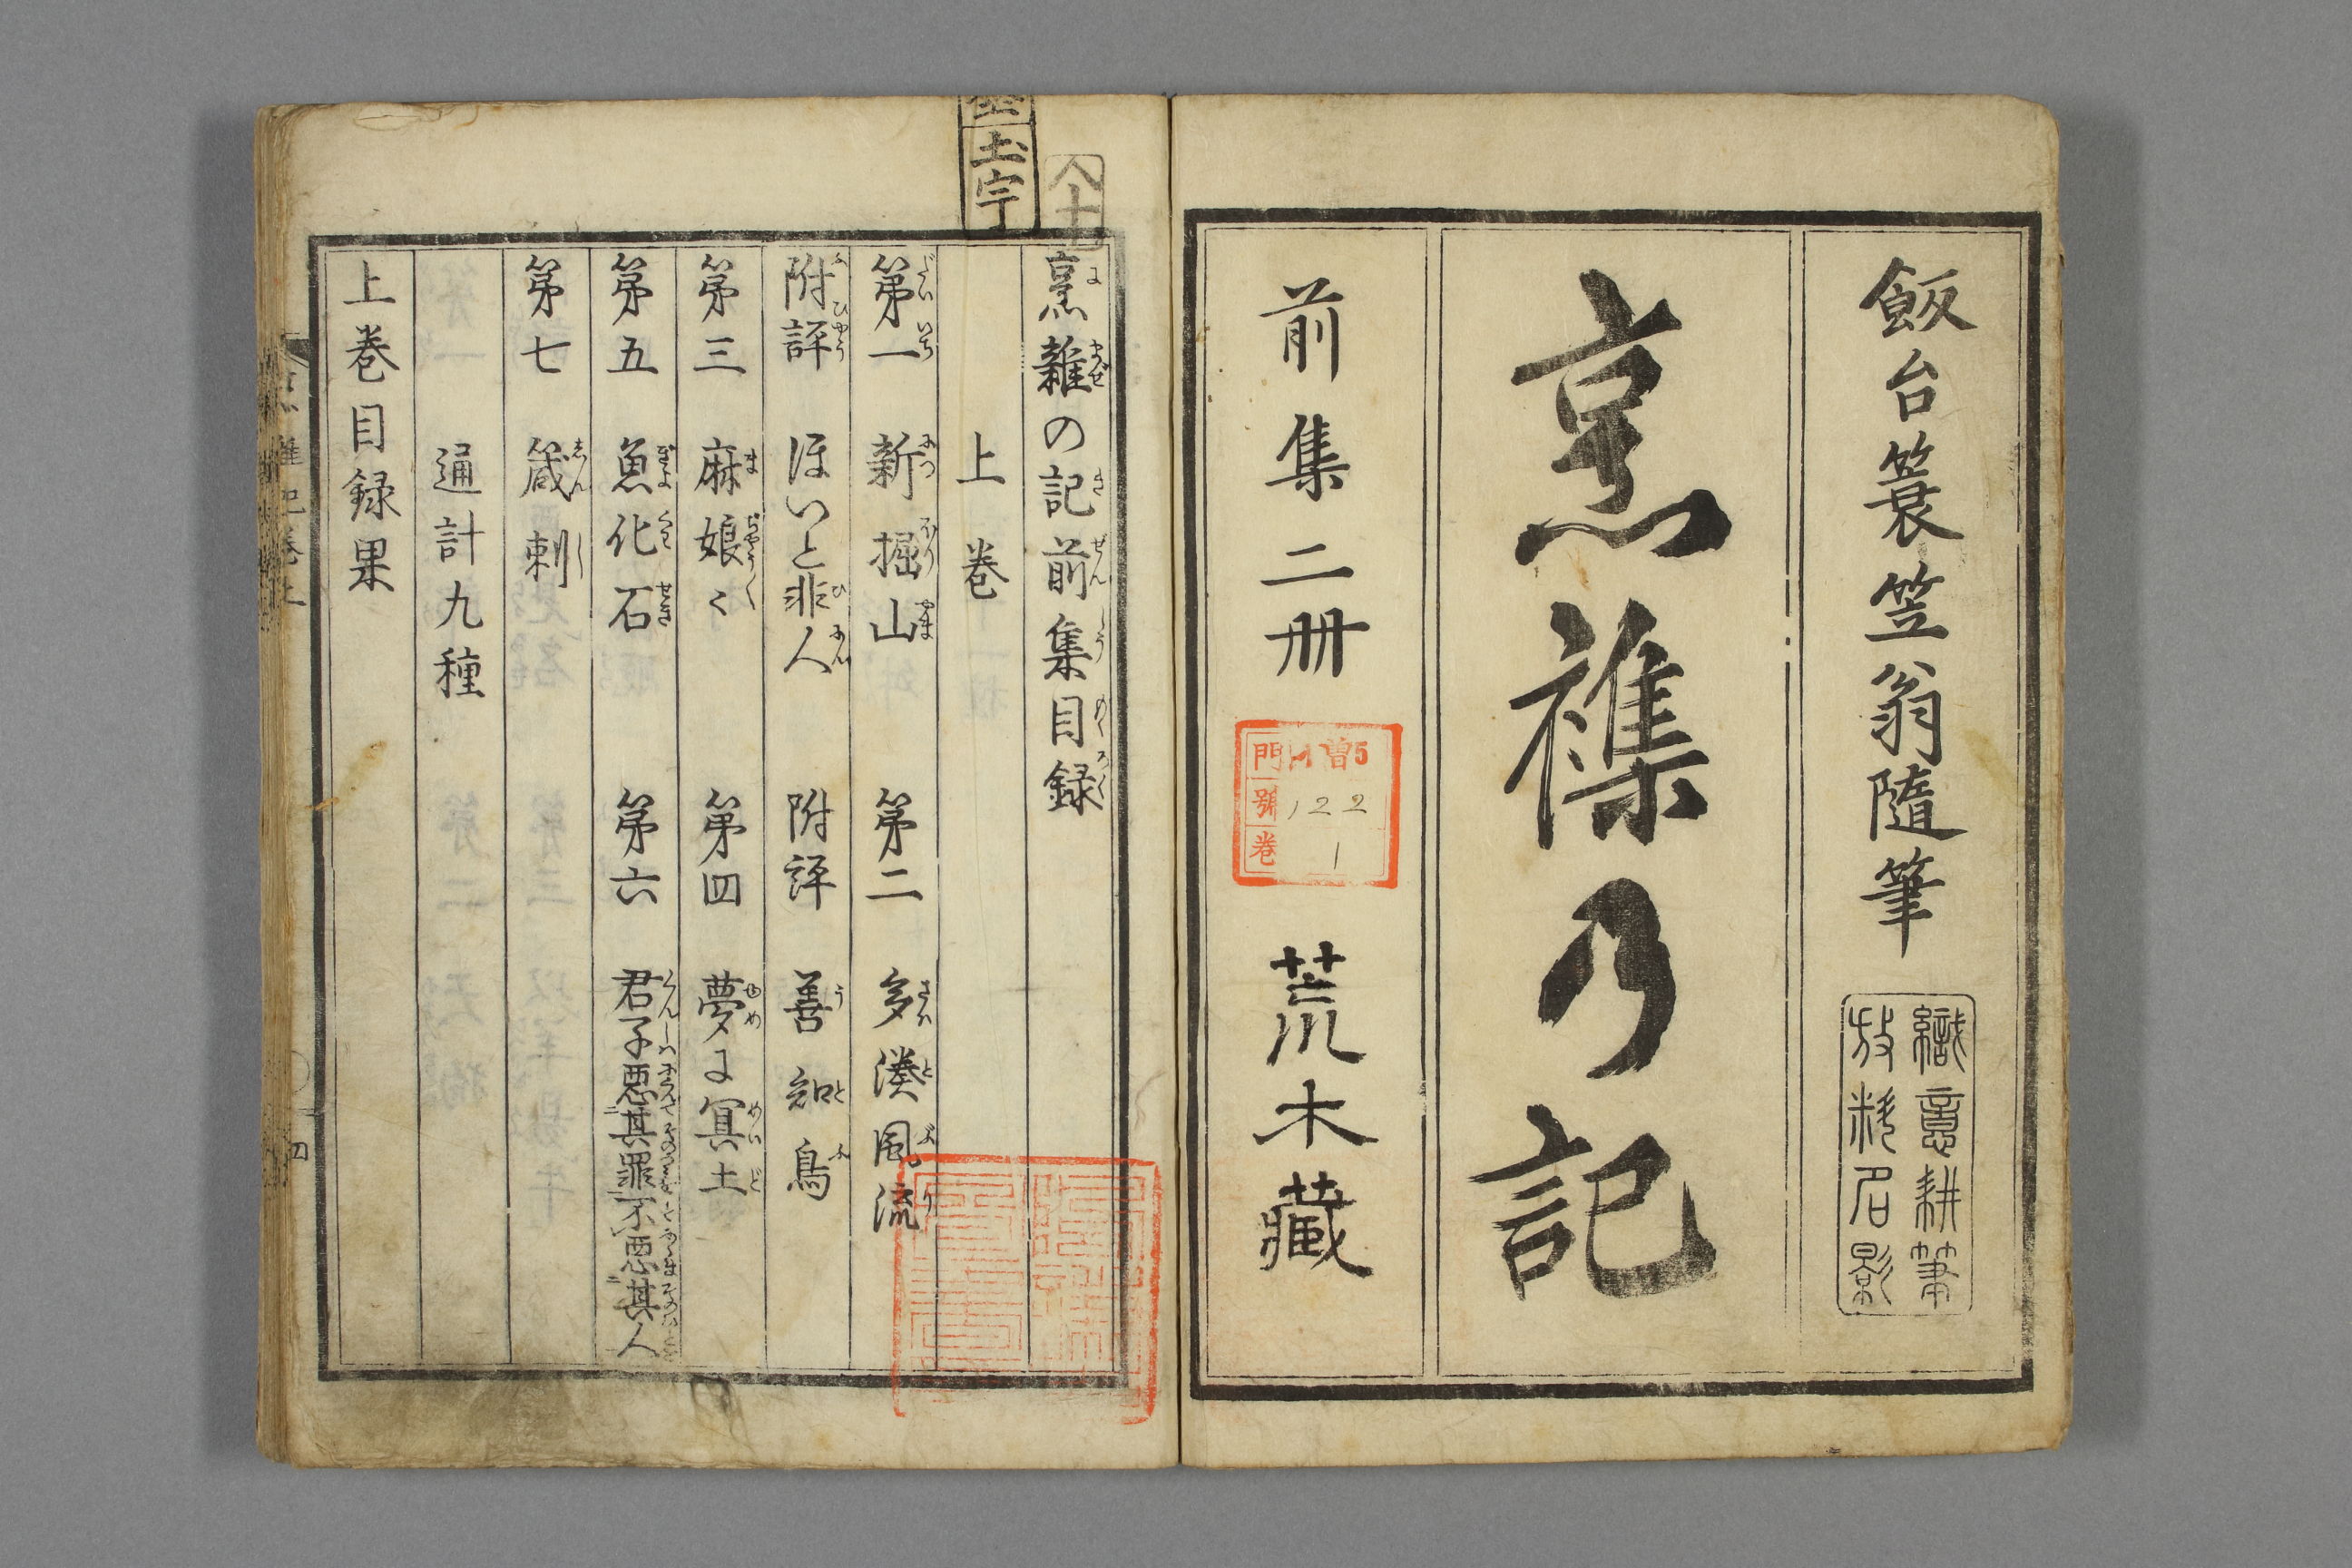 飯台簑笠翁隨筆
織意耕筆
烹襍乃記
前集二冊
荒木藏
門
號
巻
曽5
122
1
烹雜の記前集目録
上巻
第一 新掘山 第二 多湊風流
附評 ほいと非人 附評 善知鳥
第三 麻娘〻 第四 夢に冥土
第五 魚化石 第六 君子悪其罪不悪其人
第七 箴刺
通計九種
上巻目録畢